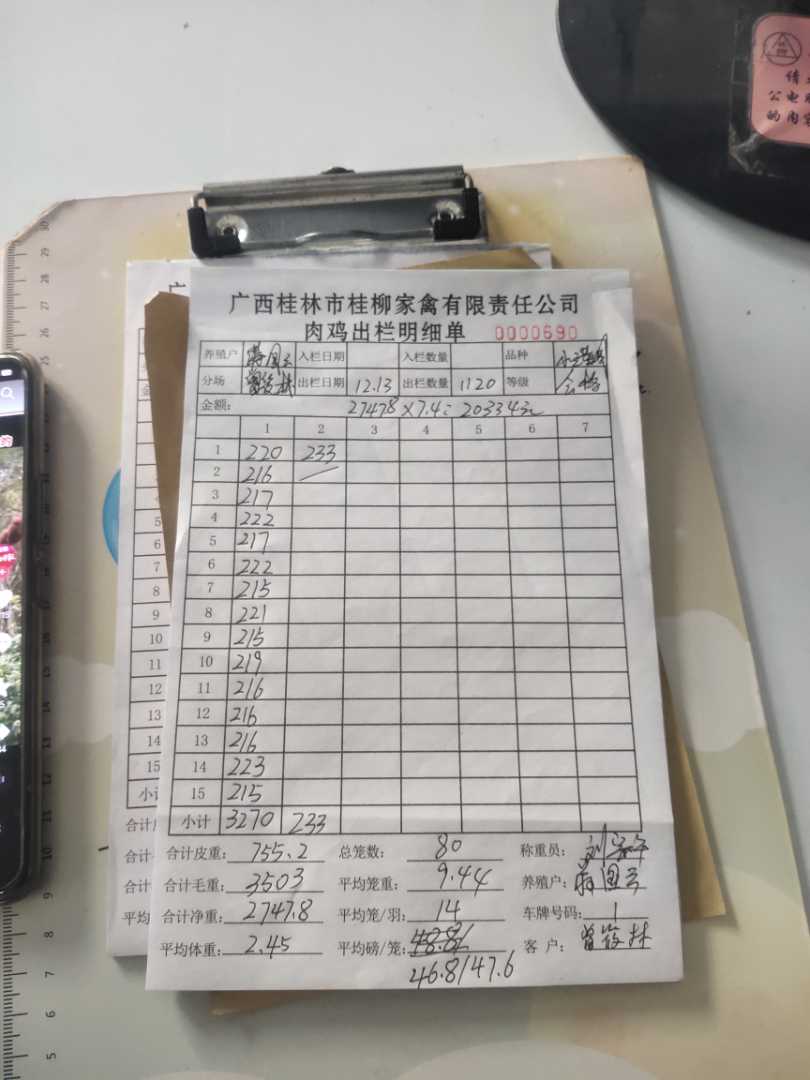 广西桂林市桂柳家禽有限责任公司
肉鸡出栏明细单 0000690
养殖户 蒋国云 入栏日期 入栏数量 品种
分场 曾筱林 出栏日期 12.13 出栏数量 1120 等级
金额: 27478×7.4=203343元
1 2 3 4 5 6 7
1 220 233
2 216
3 217
4 222
5 217
6 222
7 215
8 221
9 215
10 219
11 216
12 216
13 216
14 223
15 215
小计 3270 233
合计皮重: 755.2 总笼数: 80 称重员:
合计毛重: 3503 平均笼重: 9.44 养殖户: 蒋国云
合计净重: 2747.8 平均笼/羽: 14 车牌号码: 1
平均体重: 2.45 平均磅/笼: 客 户: 曾筱林
46.8/47.6